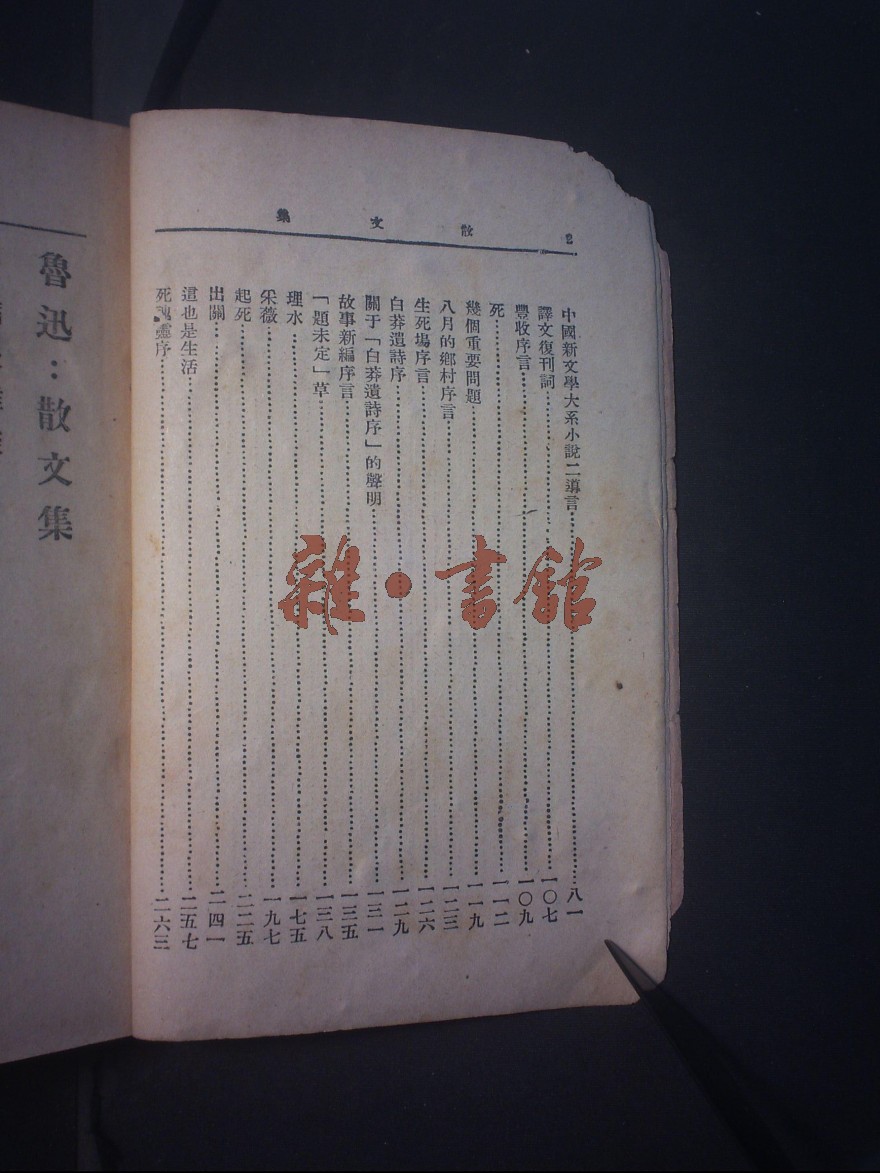 2 散文集
中國新文學大系小說二導言……八一
譯文復刊詞……一〇七
豐收序言……一〇九
死……一一二
幾個重要問題……一一九
八月的鄉村序言……一二三
生死場序言……一二六
白莽遺詩序……一二九
關于「白莽遺詩序」的聲明……一三一
故事新編序言……一三五
「題未定」草……一三八
理水……一七五
采薇……一九七
起死……二二五
出關……二四一
這也是生活……二五七
死魂靈序……二六三
魯迅：散文集
雜·書館